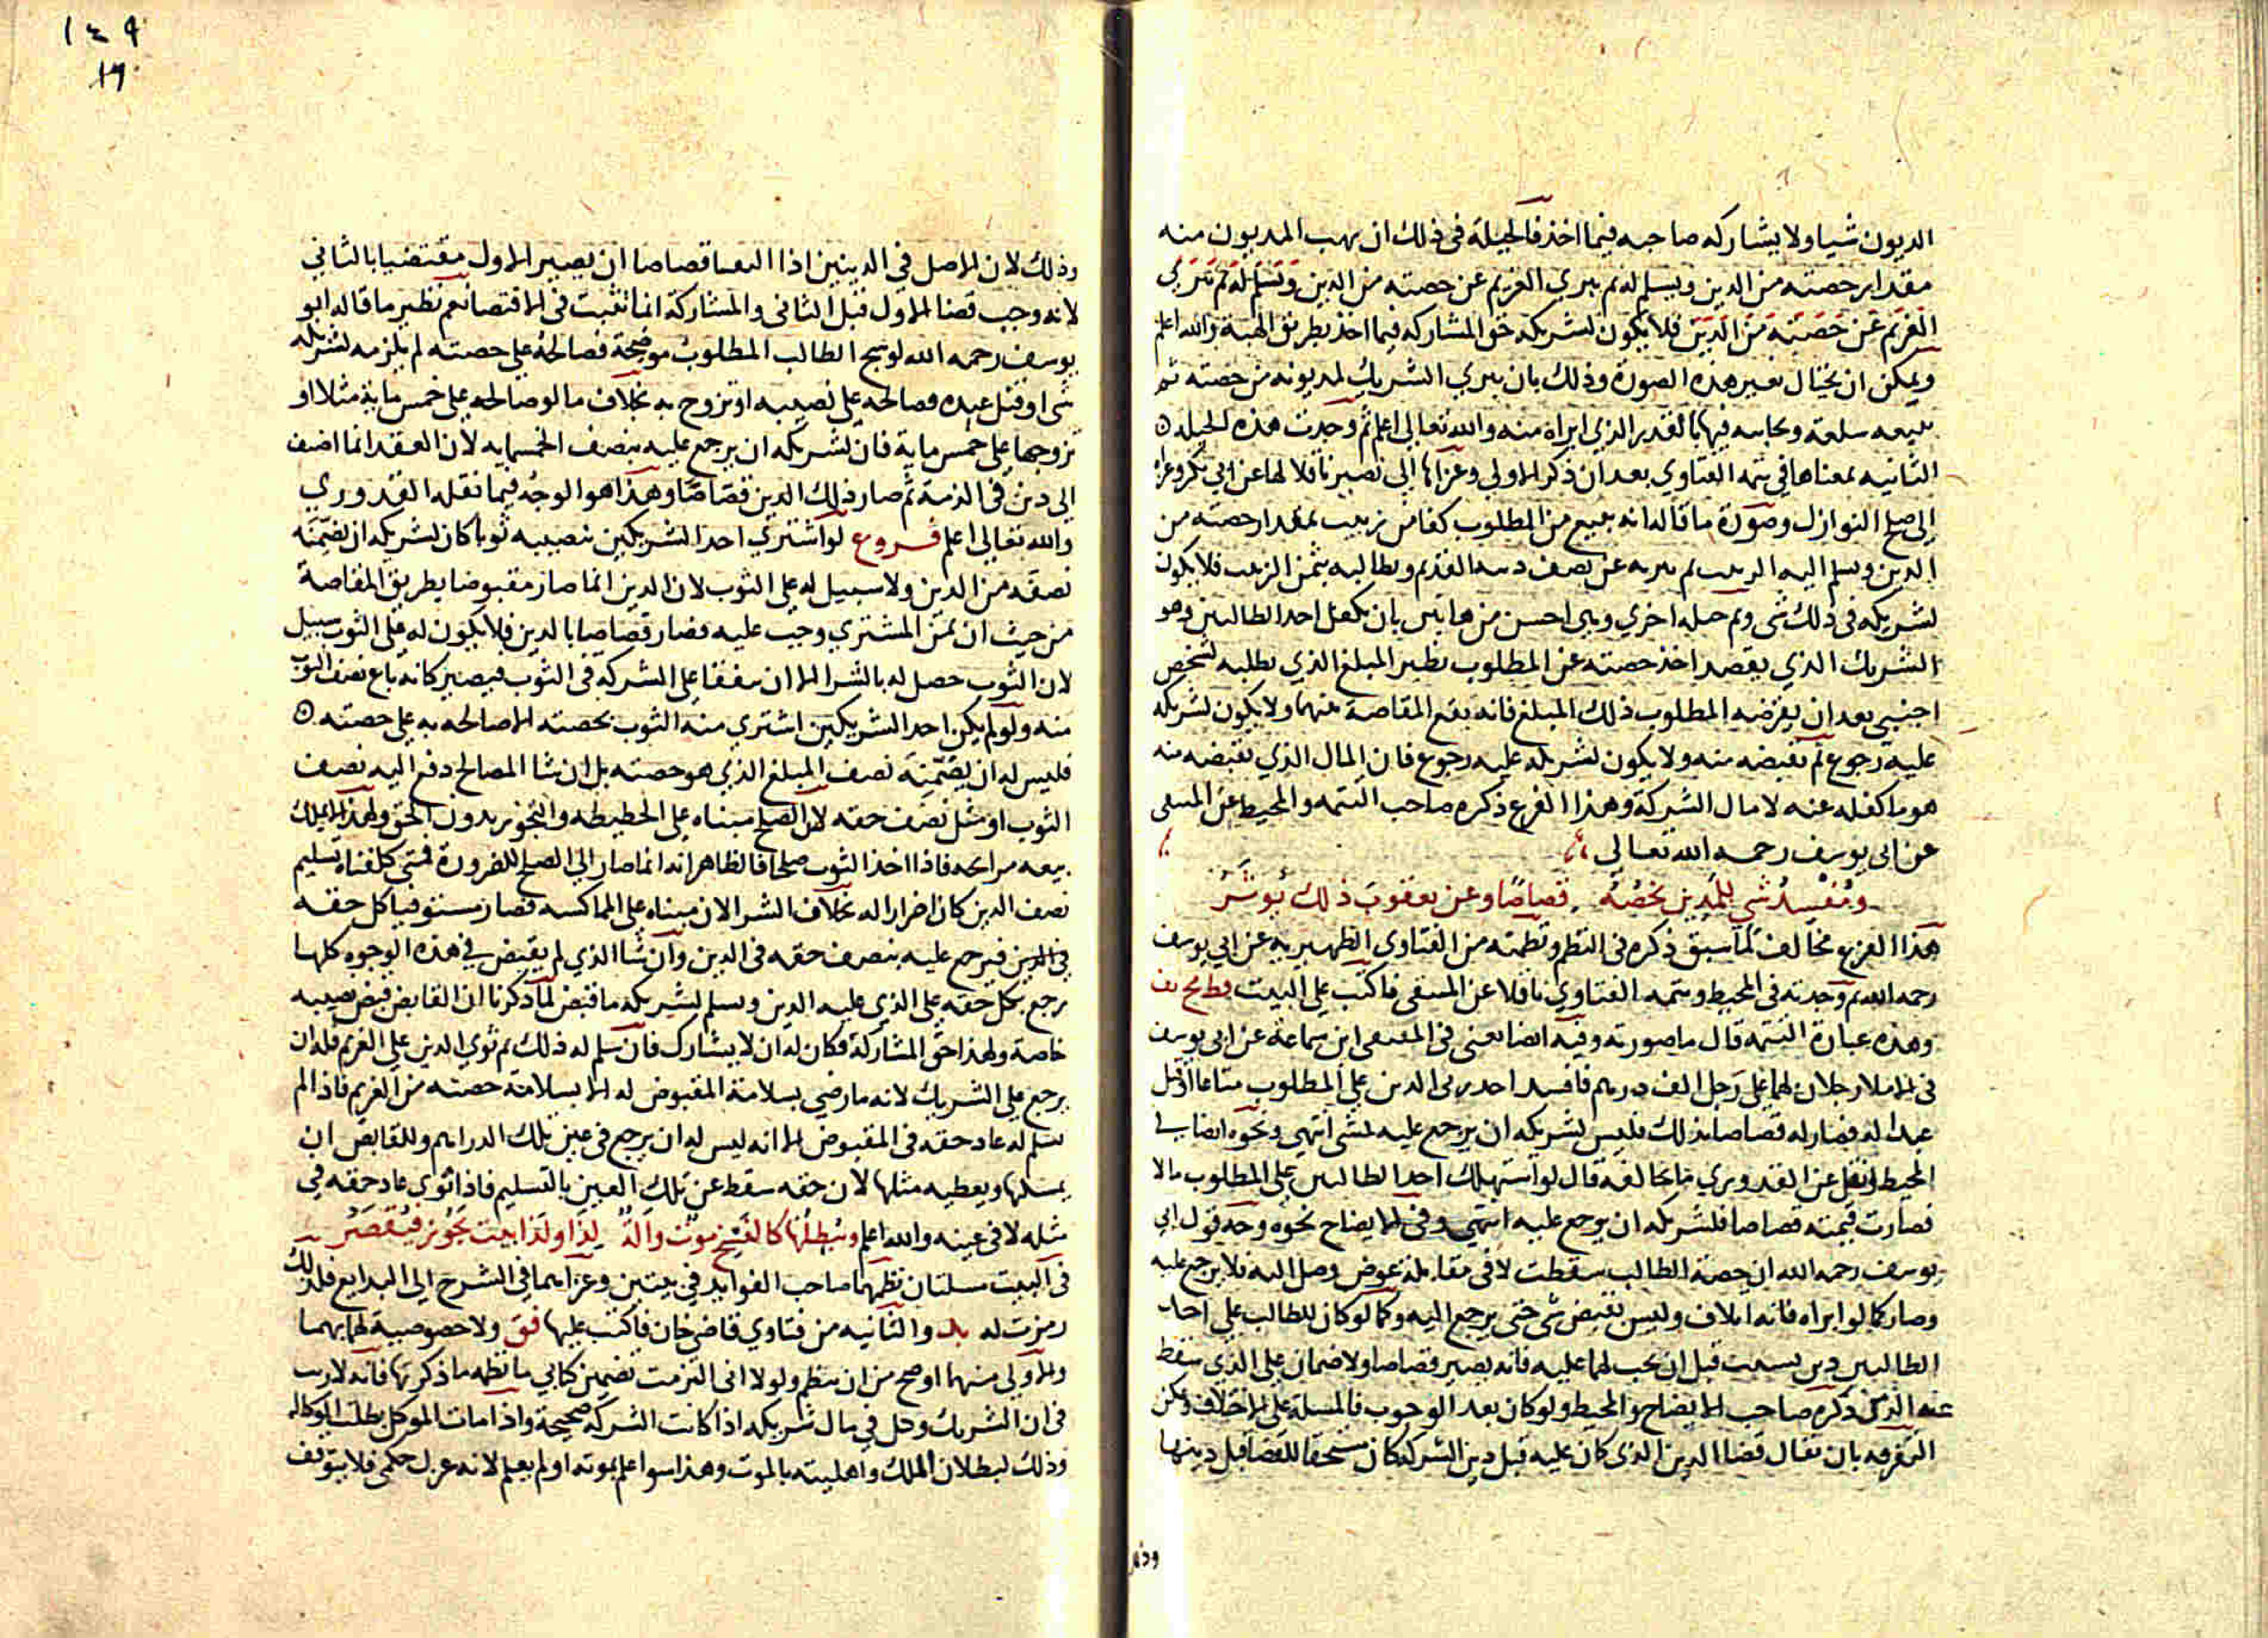 المديون شيا ولا يشاركه صاحبه فيما اخذ فالحيلة في ذلك ان يهب المديون منه
مقدار حصته من الدين ويسلم له ثم يبري الغريم عن حصته من الدين وتسلم له ثم تبري
الغريم عن حصته من الدين فلا يكون لشريكه حق المشاركة فيما اخذ بطريق الهبة والله اعلم
ويمكن ان يحتال بغير هذه الصورة وذلك بان يبري الشريك لمديونه من حصته ثم
يبيعه سلعة ويحابيه فيها بالقدر الذي ابراه منه والله تعالى اعلم ثم وجدت هذه الحيله
الثانيه بمعناها في تتمه الفتاوي بعد ان ذكر الاولى وعزاها الى نصير ناقلا لها عن ابي بكر وعزا
الى صلح النوازل وصورة ما قاله انه يبيع من المطلوب كفا من زبيب بمقدار حصته من
الدين ويسلم اليه الزبيب ثم يبريه عن نصف دينه القديم ويطالبه بثمن الزبيب فلا يكون
لشريكه في ذلك شى وثم حيله اخري وهي احسن من هاتين بان يكفل احد الطالبين وهو
الشريك الذي يقصد اخذ حصته عن المطلوب نظير المبلغ الذي يطلبه لشخص
اجنبي بعد ان يقرضه المطلوب ذلك المبلغ فانه يقع المقاصة منهما ولا يكون لشريكه
عليه رجوع ثم يقبضه منه ولا يكون لشريكه عليه رجوع فان المال الذي يقبضه منه
هو ما كفله عنه لا مال الشركة وهذا الفرع ذكره صاحب التتمه والمحيط عن المنتقى
عن ابي يوسف رحمه الله تعالى
ومُفسِدُ شي للمدين بحُصّه قصاصًا وعن يعقوب ذلك يُوثَرُ
هذا الفرع مخالف لما سبق ذكره في النظم ونظمته من الفتاوى الظهيريه عن ابي يوسف
رحمه الله ثم وجدته في المحيط وتتمه الفتاوي ناقلا عن المنتقى فاكتب على البيت
وهذه عبارة التتمه قال ما صورته وفيه ايضا يعني في المنتقى ابن سماعة عن ابي يوسف
في الاملا رجلان لهما على رجل الف درهم فافسد احد ربي الدين على المطلوب متاعا او قتل
عبدا له فصار له قصاصا بذلك فليس لشريكه ان يرجع عليه بشى انتهى ونحوه ايضا في
المحيط ونقل عن القدوري ما يخالفه قال لو استهلك احد الطالبين على المطلوب مالا
فصارت قيمته قصاصا فلشريكه ان يرجع عليه انتهى وفي الايضاح نحوه وجه قول ابي
يوسف رحمه الله ان حصة الطالب سقطت لا في مقابلة عوض وصل اليه فلا يرجع عليه
وصار كما لو ابراه فانه اتلاف وليس بقبض شى حتى يرجع اليه وكما لو كان للطالب على احد
الطالبين دين بسبب قبل ان يجب لهما عليه فانه يصير قصاصا ولا ضمان على الذي سقط
عنه الدين ذكره صاحب الايضاح والمحيط ولو كان بعد الوجوب فالمسلة على الاختلاف ويمكن
التفرقه بان يقال قضا الدين الذي كان عليه قبل دين الشركة كان مستحقا للقضا قبل دينها
١٤٩
١٦
وذلك لان الاصل في الدينين اذا التقيا قصاصا ان يصير الاول مقتضيا بالثاني
لانه وجب قضا الاول قبل الثاني والمشاركة انما تثبت في الاقتضا نعم نظير ما قاله ابو
يوسف رحمه الله لو شج الطالب المطلوب موضحة فصالحه على حصته لم يلزمه لشريكه
شى او قتل عبده فصالحه على نصيبه او تزوج به بخلاف ما لو صالحه على خمس ماية مثلا او
تزوجها على خمس ماية فان لشريكه ان يرجع عليه بنصف الخمسمايه لان العقد انما اضف
الى دين في الذمة ثم صار ذلك الدين قصاصا وهذا هو الوجه فيما نقله القدوري
والله تعالى اعلم فروع لو اشتري احد الشريكين بنصيبه ثوبا كان لشريكه ان يضمنه
نصفه من الدين ولا سبيل له على الثوب لان الدين انما صار مقبوضا بطريق المقاصة
من حيث ان ثمن المشتري وجب عليه فصار قصاصا بالدين فلا يكون له على الثوب سبيل
لان الثوب حصل له بالشرا الا ان يتفقا على الشركه في الثوب فيصير كانه باع نصف الثوب
منه ولو لم يكن احد الشريكين اشتري منه الثوب بحصته الا صالحه به على حصته
فليس له ان يضمنه نصف المبلغ الذي هو حصته بل ان شا المصالح دفع اليه نصف
الثوب او مثل نصف حقه لان الصلح مبناه على الحطيطه والتجوز بدون الحق ولهذا لا يملك
بيعه مرابحه فاذا اخذ الثوب صلحا فالظاهر انه انما صار الى الصلح للضرورة فمتى كلفناه تسليم
نصف الدين كان اضرارا له بخلاف الشرا لان مبناه على المماكسه فصار مستوفيا كل حقه
في الدين فيرجع عليه بنصف حقه في الدين وان شا الذي لم يقبض في هذه الوجوه كلها
رجع بكل حقه على الذي عليه الدين ويسلم لشريكه ما قبض لما ذكرنا ان القابض قبض نصيبه
خاصة ولهذا حق المشاركة فكان له ان لا يشارك فان سلم له ذلك ثم توي الدين على الغريم فله ان
يرجع على الشريك لانه ما رضي بسلامة المقبوض له الا بسلامة حصته من الغريم فاذا لم
يسلم له عاد حقه في المقبوض الا انه ليس له ان يرجع في عين تلك الدراهم وللقابض ان
يمسكها ويعطيه مثلها لان حقه سقط عن تلك العين بالتسليم فاذا توي عاد حقه في
مثله لا في عينه والله اعلم ويُبطلُها كالفسخ موت
في البيت مسلتان نظمهما صاحب الفوايد في بيتين وعزاهما في الشرح الى البدايع فلذلك
رمزت له بد والثانيه من فتاوي قاضى خان فاكتب عليها فق ولا خصوصية لها بهما
والاولى منهما اوضح من ان ينظم ولولا اني التزمت تضمين كتابي ما نظمه ما ذكرتها فانه لا ريب
في ان الشريك وكل في مال شريكه اذا كانت الشركه صحيحة واذا مات الموكل بطلت الوكاله
وذلك لبطلان الملك واهليته بالموت وهذا سوا علم بموته او لم يعلم لانه عزل حكمي فلا يتوقف